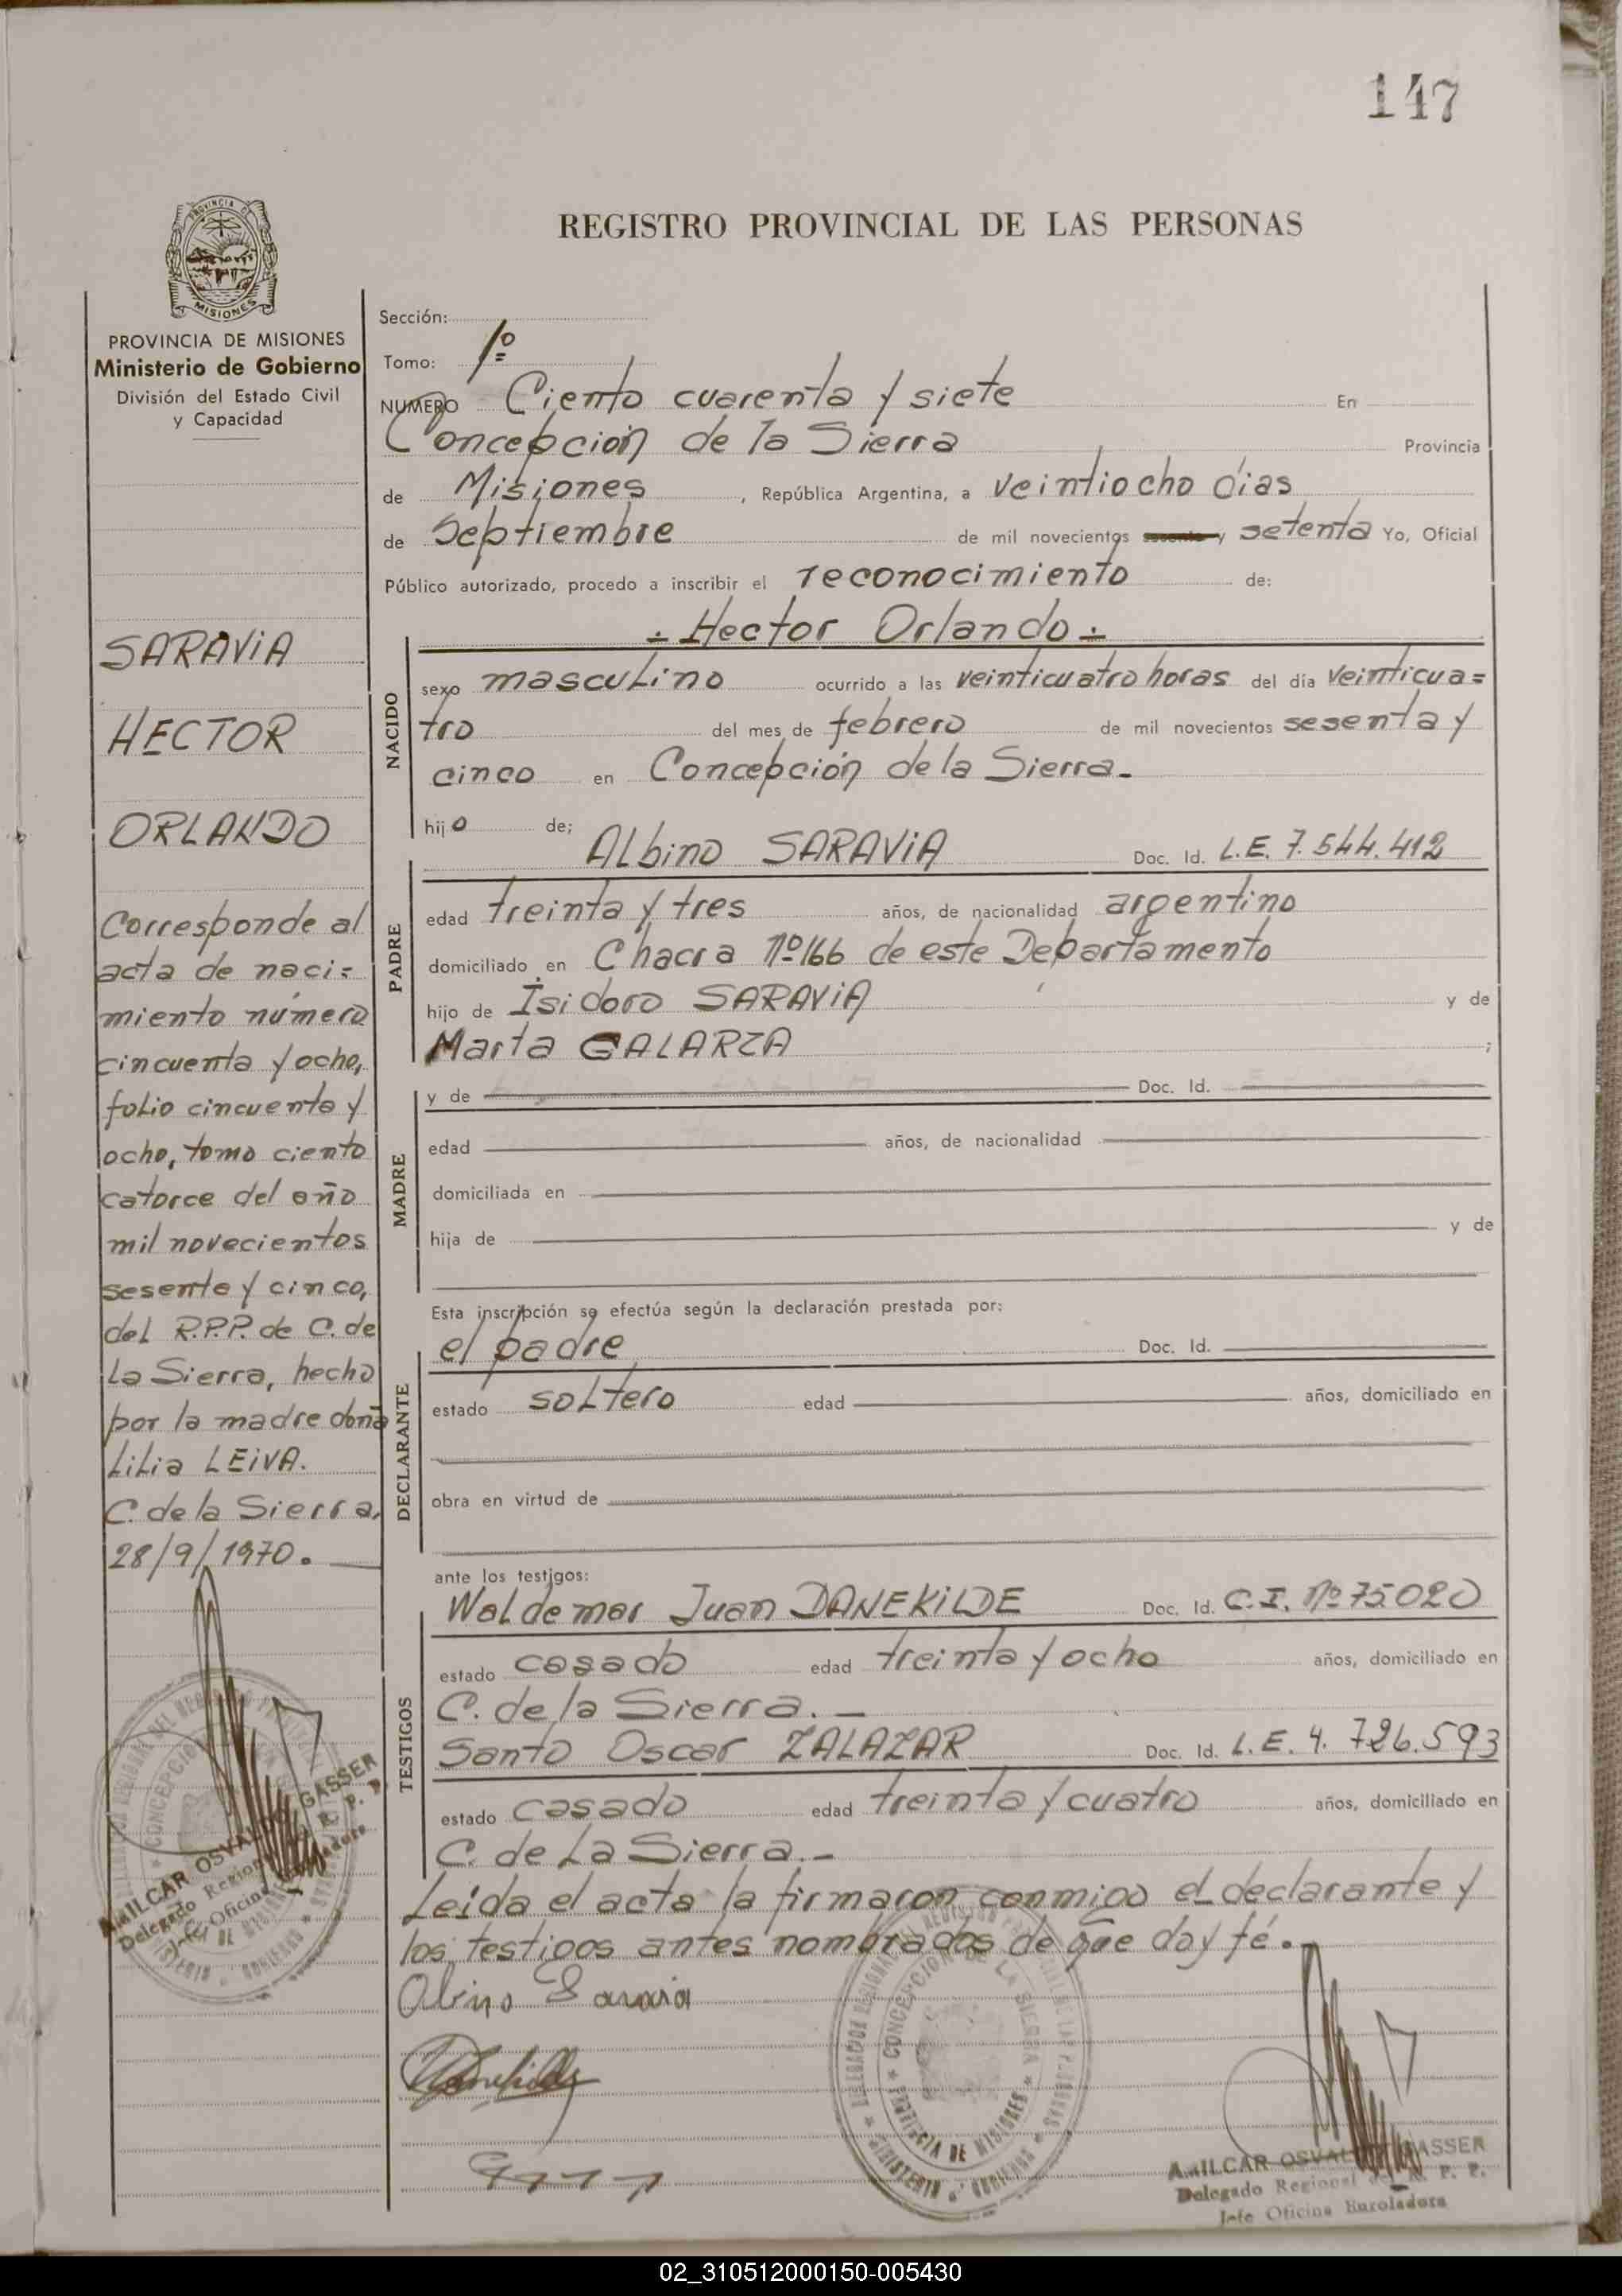 147
PROVINCIA DE
MISIONES
REGISTRO PROVINCIAL DE LAS PERSONAS
PROVINCIA DE MISIONES
Ministerio de Gobierno
División del Estado Civil
y Capacidad
SARAVIA
HECTOR
ORLANDO
Corresponde al
acta de naci=
miento número
cincuenta y ocho,
folio cincuenta y
ocho, tomo ciento
catorce del año
mil novecientos
sesenta y cinco,
del R.P.P. de C. de
la Sierra, hecho
por la madre doña
Lilia LEIVA.
C. de la Sierra,
28/9/1970.
AMILCAR OSVALDO GASSER
Delegado Regional R. P. P.
Jefe Oficina Enroladora
Sección:
Tomo: 1º
NUMERO Ciento cuarenta y siete En
Concepción de la Sierra Provincia
de Misiones, República Argentina, a veintiocho días
de Septiembre de mil novecientos sesenta y setenta Yo, Oficial
Público autorizado, procedo a inscribir el reconocimiento de:
.- Hector Orlando -.
NACIDO
sexo masculino ocurrido a las veinticuatro horas del día veinticua=
tro del mes de febrero de mil novecientos sesenta y
cinco en Concepción de la Sierra.-
hijo de;
Albino SARAVIA Doc. Id. L.E. 7.544.412
PADRE
edad treinta y tres años, de nacionalidad argentino
domiciliado en Chacra Nº 166 de este Departamento
hijo de Isidoro SARAVIA y de
Marta GALARZA ;
MADRE
y de Doc. Id.
edad años, de nacionalidad
domiciliada en
hija de y de
Esta inscripción se efectúa según la declaración prestada por:
el padre Doc. Id.
DECLARANTE
estado soltero edad años, domiciliado en
obra en virtud de
ante los testigos:
Waldemar Juan DANEKILDE Doc. Id. C.I. Nº 75020
TESTIGOS
estado casado edad treinta y ocho años, domiciliado en
C. de la Sierra.-
Santo Oscar ZALAZAR Doc. Id. L.E. 4.726.593
estado casado edad treinta y cuatro años, domiciliado en
C. de La Sierra.-
Leída el acta la firmaron conmigo el declarante y
los testigos antes nombrados de que doy fé.-
Albino Saravia
CONCEPCION DE LA SIERRA
PROVINCIA DE MISIONES
AMILCAR OSVALDO GASSER
Delegado Regional R. P. P.
Jefe Oficina Enroladora
02_310512000150-005430